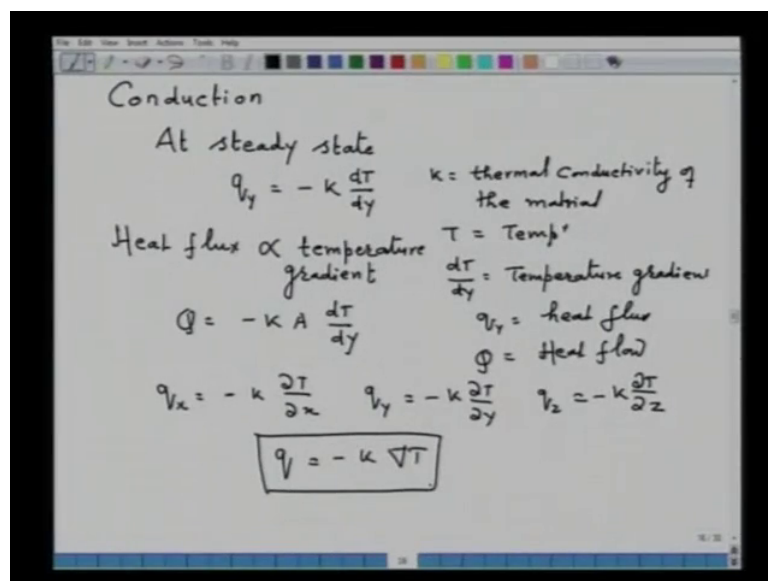 File Edit View Insert Actions Tools Help
Conduction
At steady state
q_y = - K dT/dy
K = thermal conductivity of
the matrial
Heat flux ∝ temperature
gradient
T = Temp'
dT/dy = Temperature gradien
Q = - K A dT/dy
q_y = heat flux
Q = Heat flow
q_x = - K ∂T/∂x q_y = - K ∂T/∂y q_z = - K ∂T/∂z
q = - K ∇T